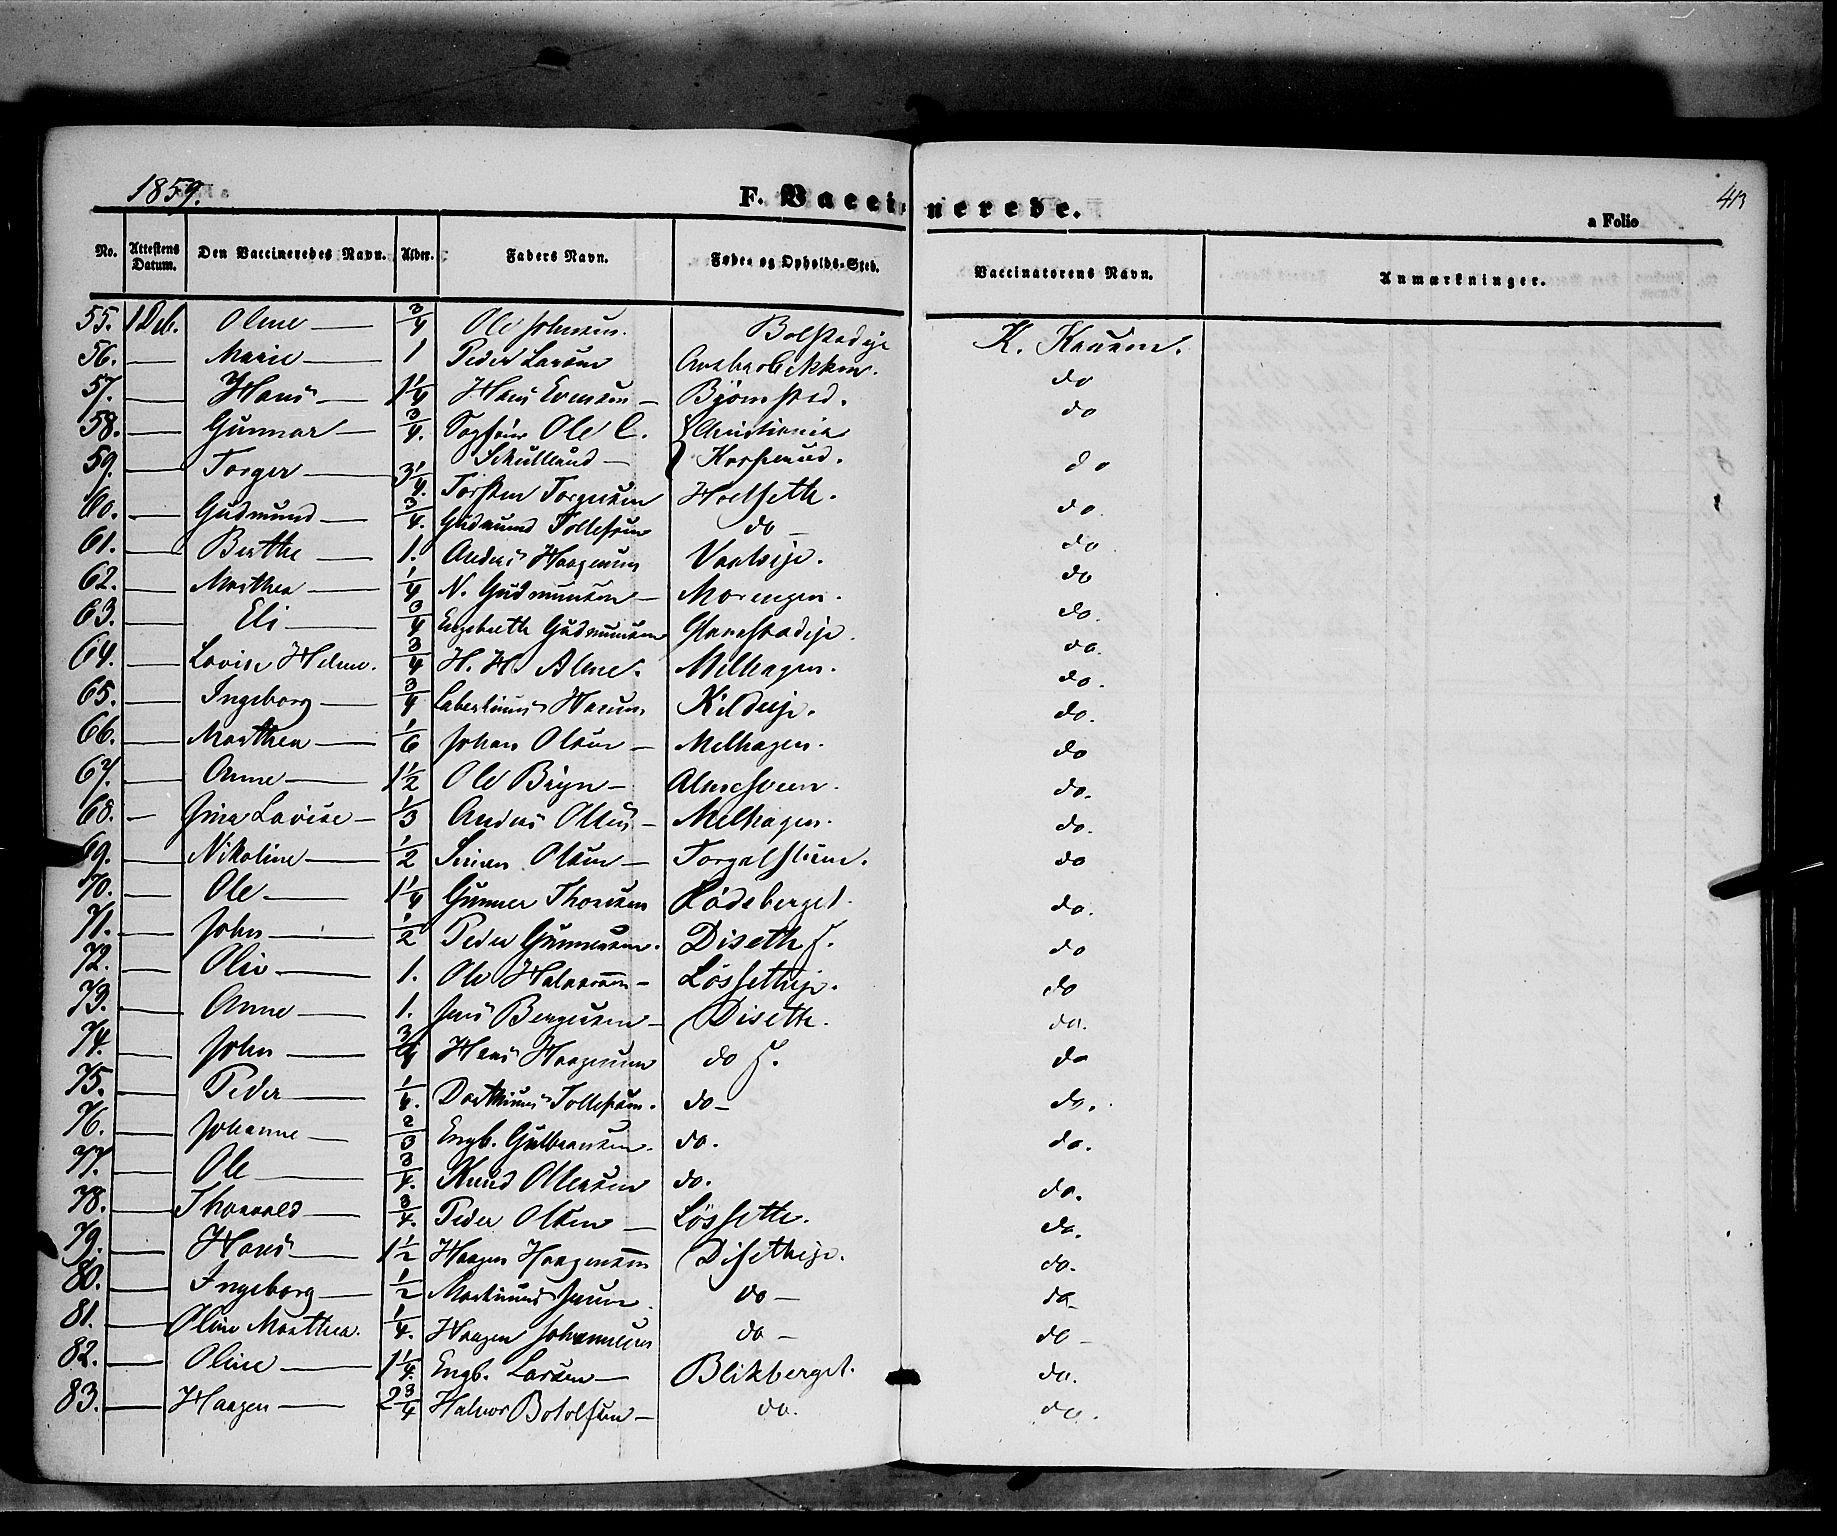 1859.
F. Vaccinerede.
413
a Folio
No. Attestens Datum. Den Vaccineredes Navn. Alder. Faders Navn. Føde- og Opholds-Sted. Vaccinatorens Navn. Anmærkninger.
55. Oline — 3/4 Ole Johnsen. Bolstadeje
56. — Marie — 1 Peder Larsen do
57. — Hans — 1 1/4 Hans Evensen — Bjørnstad. do
58. — Gunnar — 3/4. Ole C. Christiania
59. — Torger — 3 1/4. Torsten Torgersen Hoelseth. do
60. — Gudmund — 3/4. Gudmund Tollefsen do — do.
61. — Berthe — 1. Anders Haagensen do
62. — Marthea — 1/4 N. Gudmundsen — Morengen. do
63. — Eli — 3/4 Engebreth Gudmundsen do.
64. — Lovise Helene. 3/4 H. H. Alme. Melhagen. do.
65. — Ingeborg — 3/4 Kildeje. do.
66. — Marthea — 1/6 Johan Olsen — Melhagen. do.
67. — Anne — 1 1/2 Ole Bryn — Almesveen. do
68. — Lovise — 1/3 Anders Olsen — Melhagen. do.
69. — Nikoline — 1/2 Simen Olsen — do.
70. — Ole — 1 1/4 Gunner Thorsen Lødsberget. do
71. — John — 1/2 Peder Gunnersen. Diseth do.
72. — Oliv — 1. Ole Halvorsen — Løssetheje. do
73. — Anne — 1. Jens Bergersen — Diseth. do
74. — John — 3/4 Hans Haagensen do do.
75. — Peder — 1/4. Tollefsen. do — do
76. — Johanne — 2/3 Engb. Gulbrandsen. do. do.
77. — Ole — 3/4. Knud Ollersen do. do.
78. — Thorvald — 3/4. Peder Olsen — Løsseth. do.
79. — Hans — 1 1/2 Haagen Haagensen Disetheje. do.
80. — Ingeborg — 1/2 Martinus Jensen do — do.
81. — Oline Marthea. 1/4. Haagen Johannesen do — do —
82. — Oline — 1 1/4. Engb. Larsen — Blikberget. do.
83. — Haagen — 2 3/4 Halvor Botolfsen — do. do.